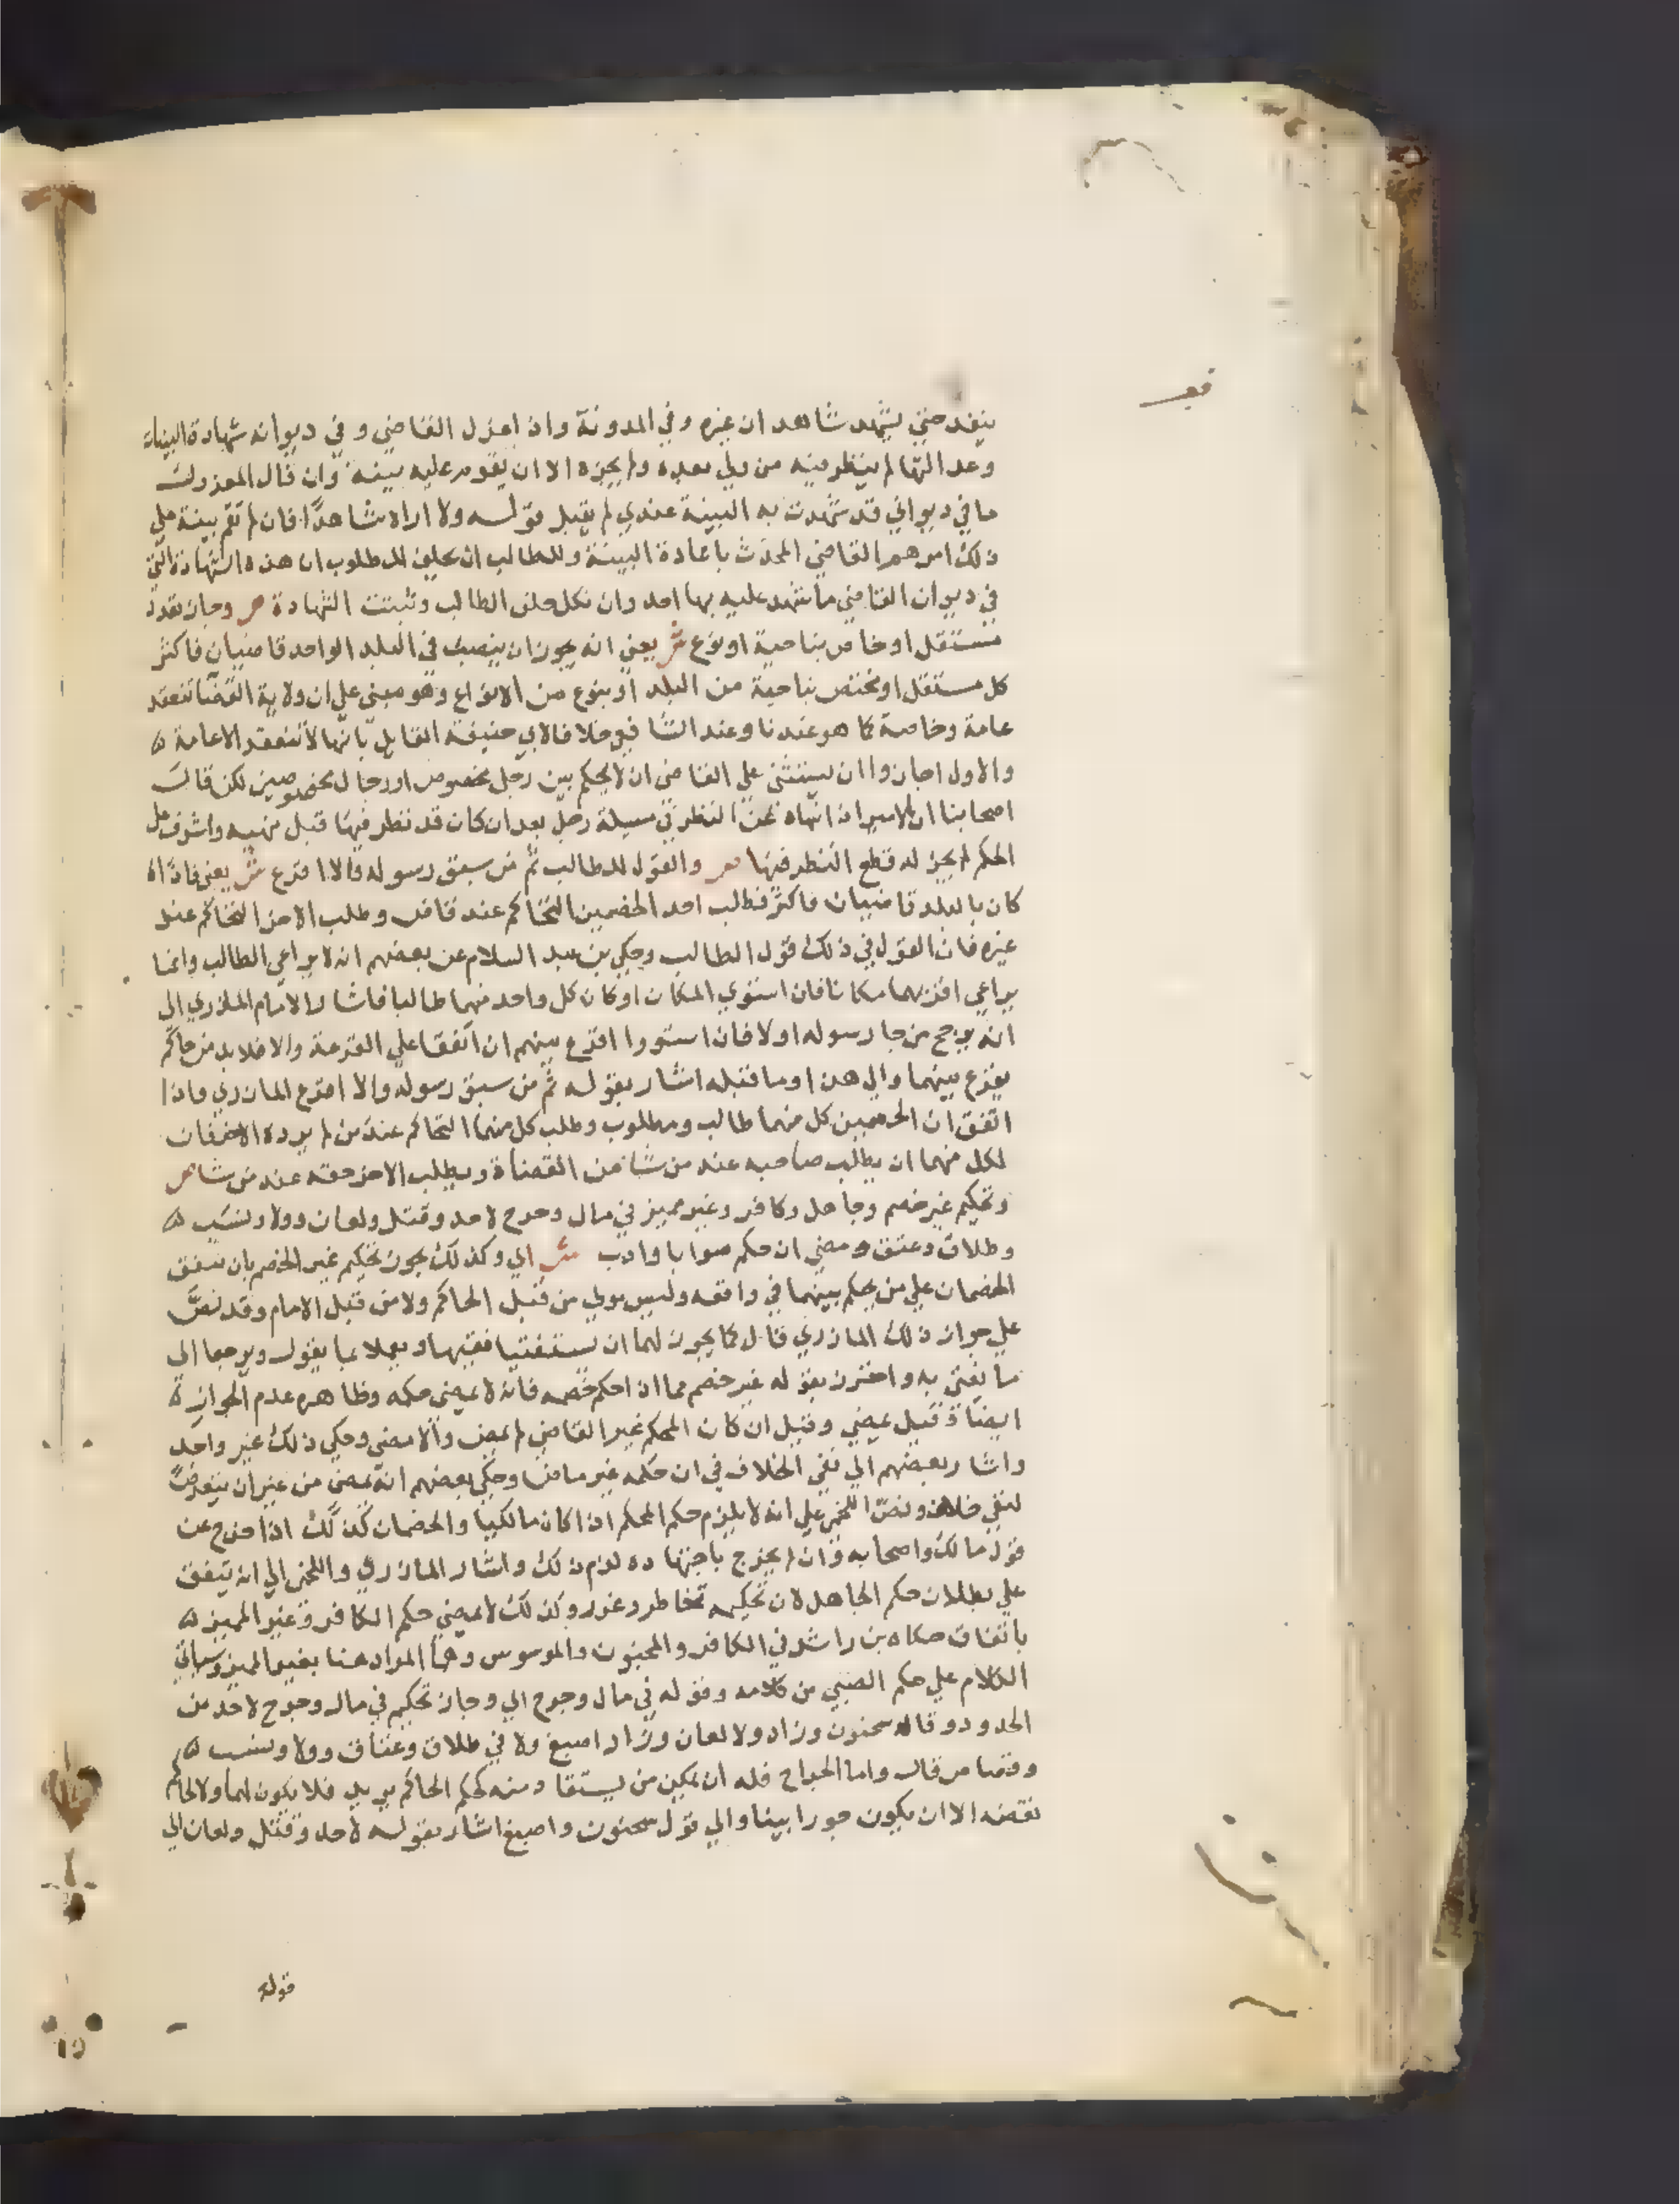 ينفد حتي يشهد شاهدان غيره وفي المدونة واذا عزل القاضي وفي ديوانه شهادة البينات
وعدالتها لم ينظر فيه من ولي بعده ولم يجزه الا ان تقوم عليه بينة وان قال المعزول
ما في ديواني قد شهدت به البينة عندي لم يقبل قوله ولا اراه شاهدا فان لم تقم بينة علي
ذلك امرهم القاضي المحدث باعادة البينة وللطالب ان يحلف المطلوب ان هذه الشهادة التي
في ديوان القاضي ما شهد عليه بها احد وان نكل حلف الطالب وثبتت الشهادة ص وجاز تعدد
مستقل او خاص بناحية او نوع ش يعني انه يجوز ان ينصب في البلد الواحد قاضيان فاكثر
كل مستقل او مختص بناحية من البلد او بنوع من الانواع وهو مبني علي ان ولاية القضا تنعقد
عامة وخاصة كما هو عندنا وعند الشافعي خلافا لابي حنيفة القايل بانها لا تنعقد الا عامة
والاول اجازوا ان يستثني علي القاضي ان لا يحكم بين رجل مخصوص او رجال مخصوصين لكن قال
اصحابنا ان الامير اذا نهاه عن النظر في مسيلة رجل بعد ان كان قد نظر فيها قبل نهيه واشرف علي
الحكم لم يجز له قطع النظر فيها ص والقول للطالب ثم من سبق رسوله والا اقرع ش يعني فاذا
كان بالبلد قاضيان فاكثر فطلب احد الخصمين التحاكم عند قاض وطلب الاخر التحاكم عند
غيره فان القول في ذلك قول الطالب وحكي بن عبد السلام عن بعضهم انه لا يراعي الطالب وانما
يراعي اقربهما مكانا فان استوي المكان او كان كل واحد منهما طالبا فاشار الامام المازري الي
انه يرجح من جا رسوله اولا فان استووا اقرع بينهم ان اتفقا علي القرعة والا فلا بد من حاكم
يقرع بينهما والي هذا وما قبله اشار بقوله ثم من سبق رسوله والا اقرع المازري واذا
اتفق ان الخصمين كل منهما طالب ومطلوب وطلب كل منهما التحاكم عند من لم يرده الاخر فان
لكل منهما ان يطلب صاحبه عند من شا من القضاة ويطلب الاخر حقه عند من شا ص
وتحكيم غير خصم وجاهل وكافر وغير مميز في مال وجرح لا حد وقتل ولعان وولا ونسب
وطلاق وعتق ومضي ان حكم صوابا وادب ش اي وكذلك يجوز تحكيم غير الخصم بان يتفق
الخصمان علي من يحكم بينهما في واقعه وليس مولي من قبل الحاكم ولا من قبل الامام وقد نص
علي جواز ذلك المازري قال كما يجوز لهما ان يستفتيا فقيها ويعملا بما يقول ويرجعا الي
ما يفتي به واحترز بقوله غير خصم مما اذا حكم خصمه فانه لا يمضي حكمه وظاهره عدم الجواز
ايضا وقيل يمضي وقيل ان كان المحكم غير القاضي لم يمض والا مضي وحكي ذلك غير واحد
واشار بعضهم الي نفي الخلاف في ان حكمه غير ماض وحكي بعضهم انه يمضي من غير ان يتعرض
لنفي خلاف ونص اللخمي علي انه لا يلزم حكم المحكم اذا كان مالكيا والخصمان كذلك اذا خرج عن
قول مالك واصحابه وان لم يخرج باجتهاده لزم ذلك واشار المازري واللخمي الي انه يتفق
علي بطلان حكم الجاهل لان تحكيمه تخاطر وغرر وكذلك لا يمضي حكم الكافر وغير المميز
باتفاق حكاه بن راشد في الكافر والمجنون والموسوس وهما المراد هنا بغير المميز وسياتي
الكلام علي حكم الصبي من كلامه وقوله في مال وجرح اي وجاز تحكيم في مال وجرح لا حد من
الحدود وقاله سحنون وزاد ولا لعان وزاد اصبغ ولا في طلاق وعتاق وولا ونسب
وقصاص قال واما الجراح فله ان يمكن من يستقاد منه كحكم الحاكم يريد فلا يكون لهما ولا لحاكم
نقضه الا ان يكون جورا بينا والي قول سحنون واصبغ اشار بقوله لا حد وقتل ولعان الي
قوله